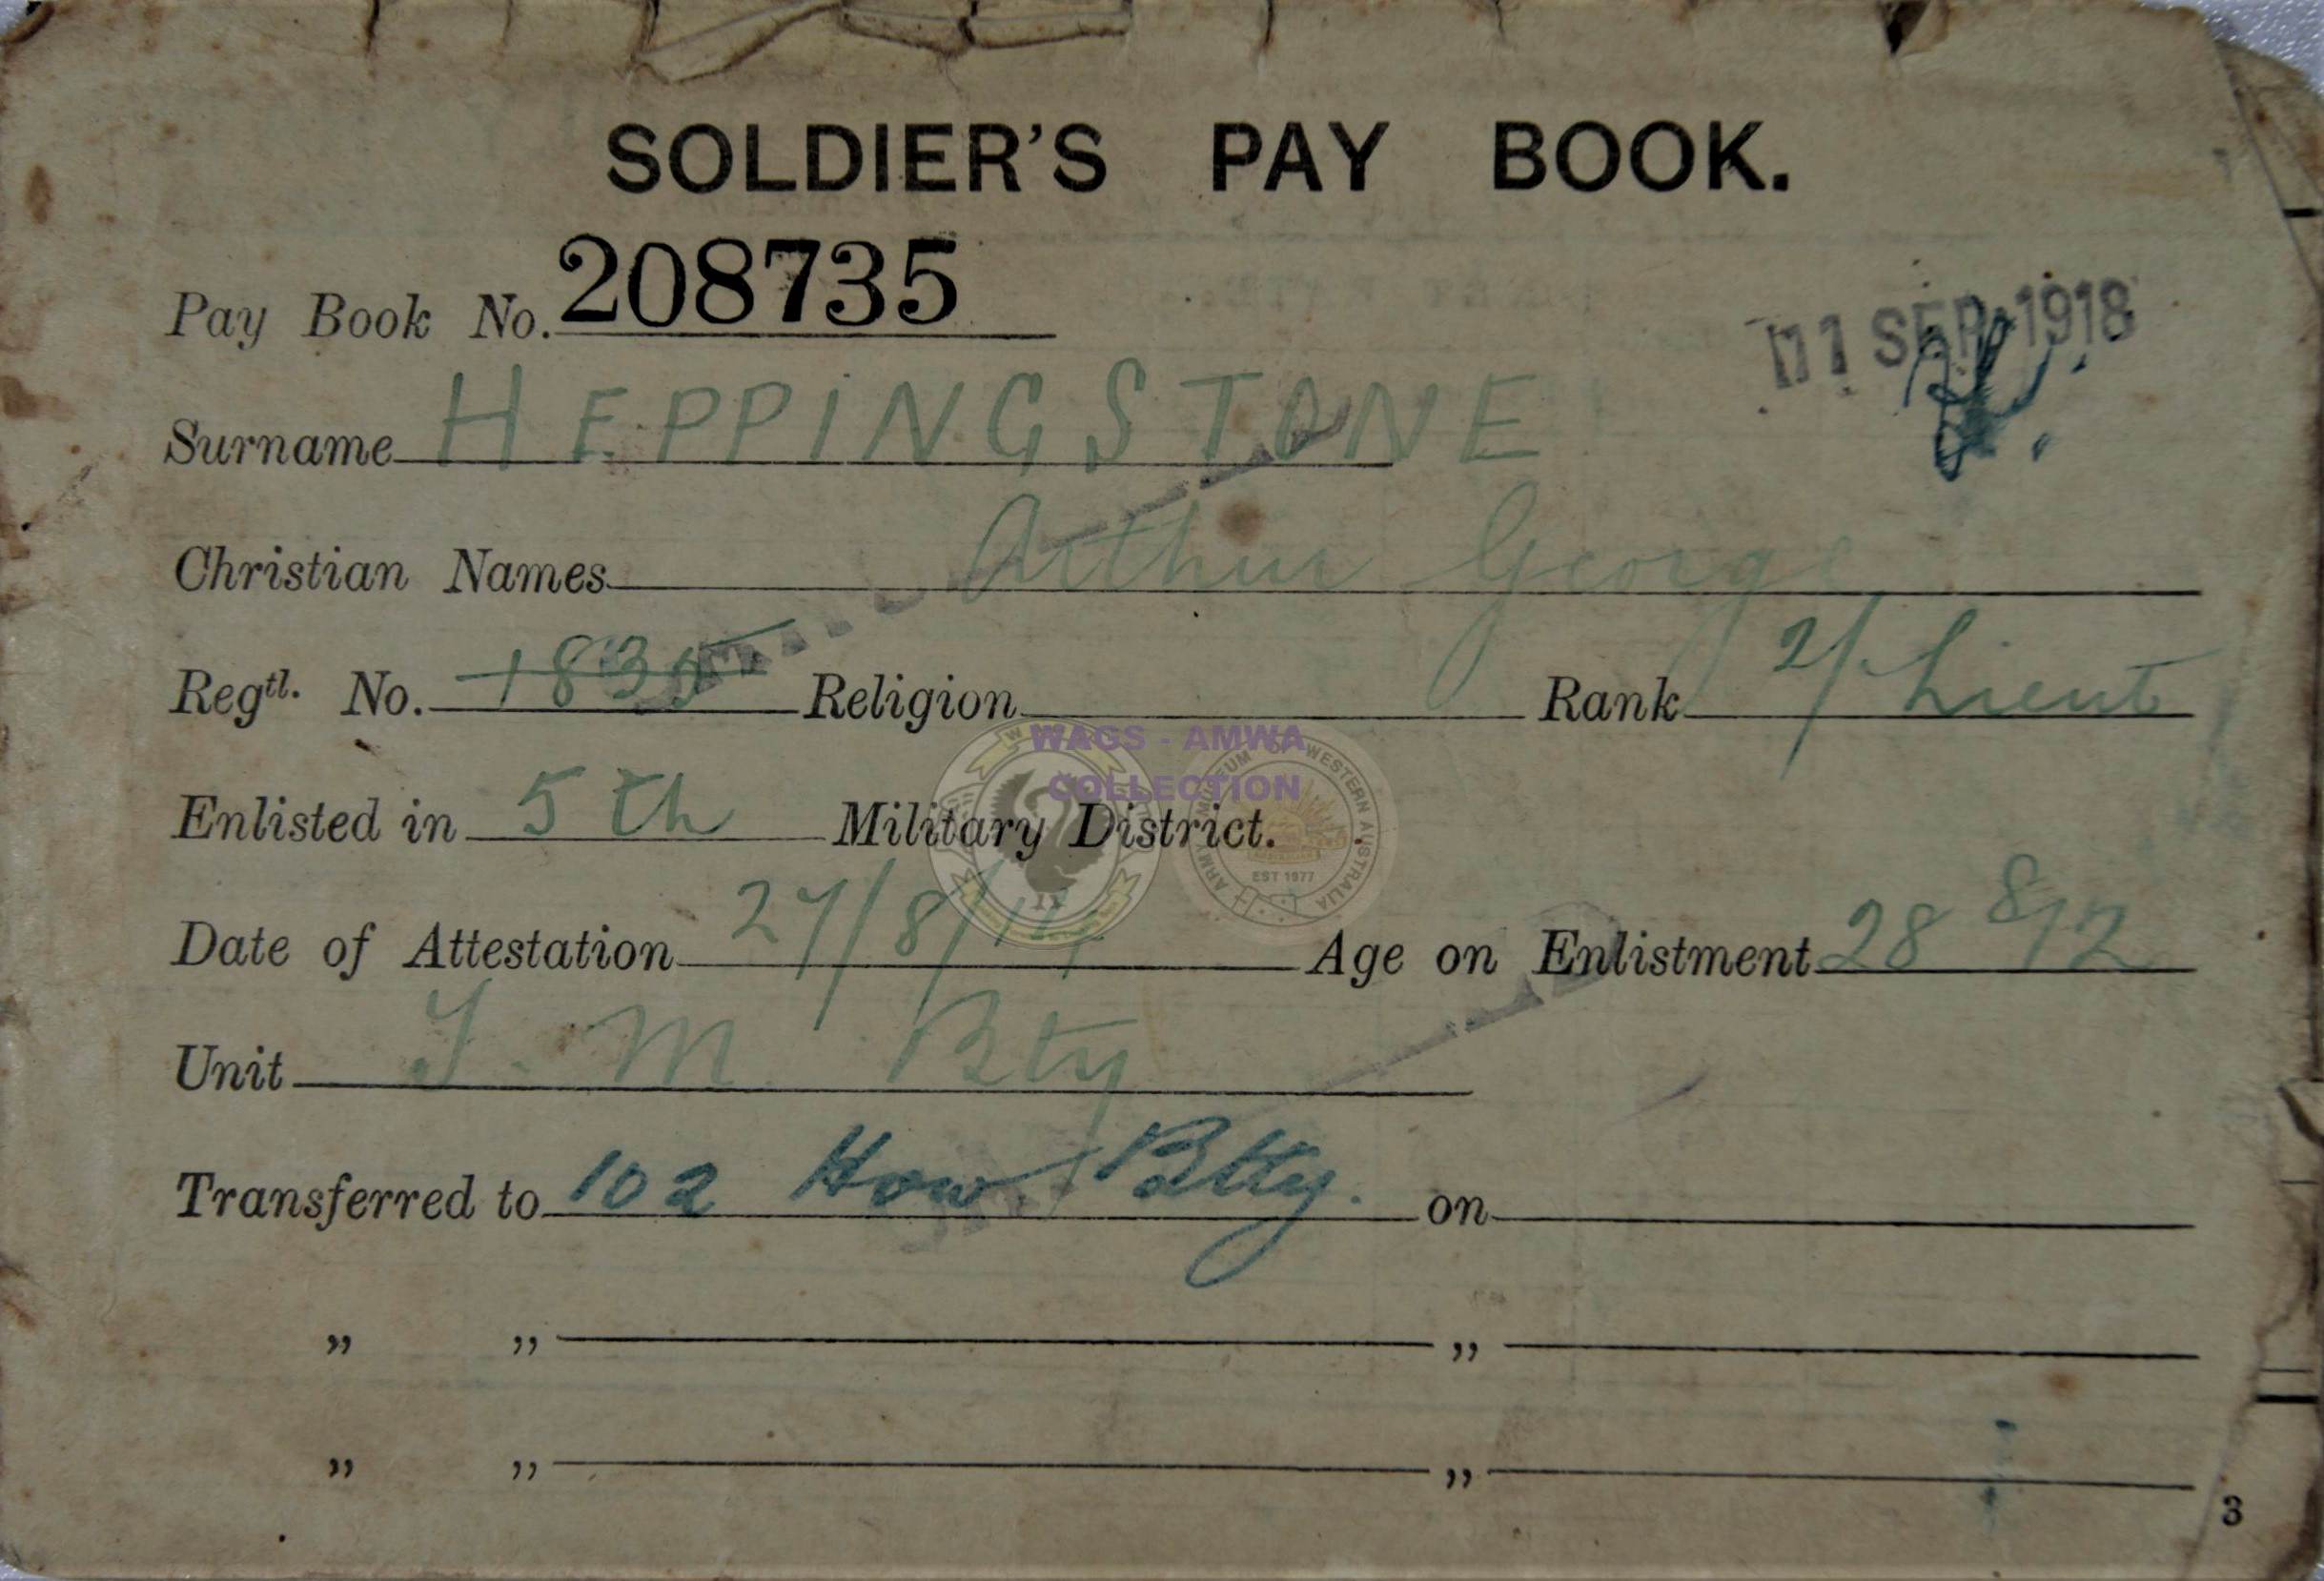 SOLDIER'S PAY BOOK.
Pay Book No. 208735
11 SEP 1918
Surname HEPPINGSTONE
Christian Names Arthur George
Regtl. No. 1835 Religion Rank 2/Lieut
WAGS - AMWA
COLLECTION
Enlisted in 5th Military District.
ARMY MUSEUM OF WESTERN AUSTRALIA
EST 1977
Date of Attestation 27/8/14 Age on Enlistment 28 8/12
Unit T. M. Bty
Transferred to 102 How Batty. on
„ „ „
„ „ „
3